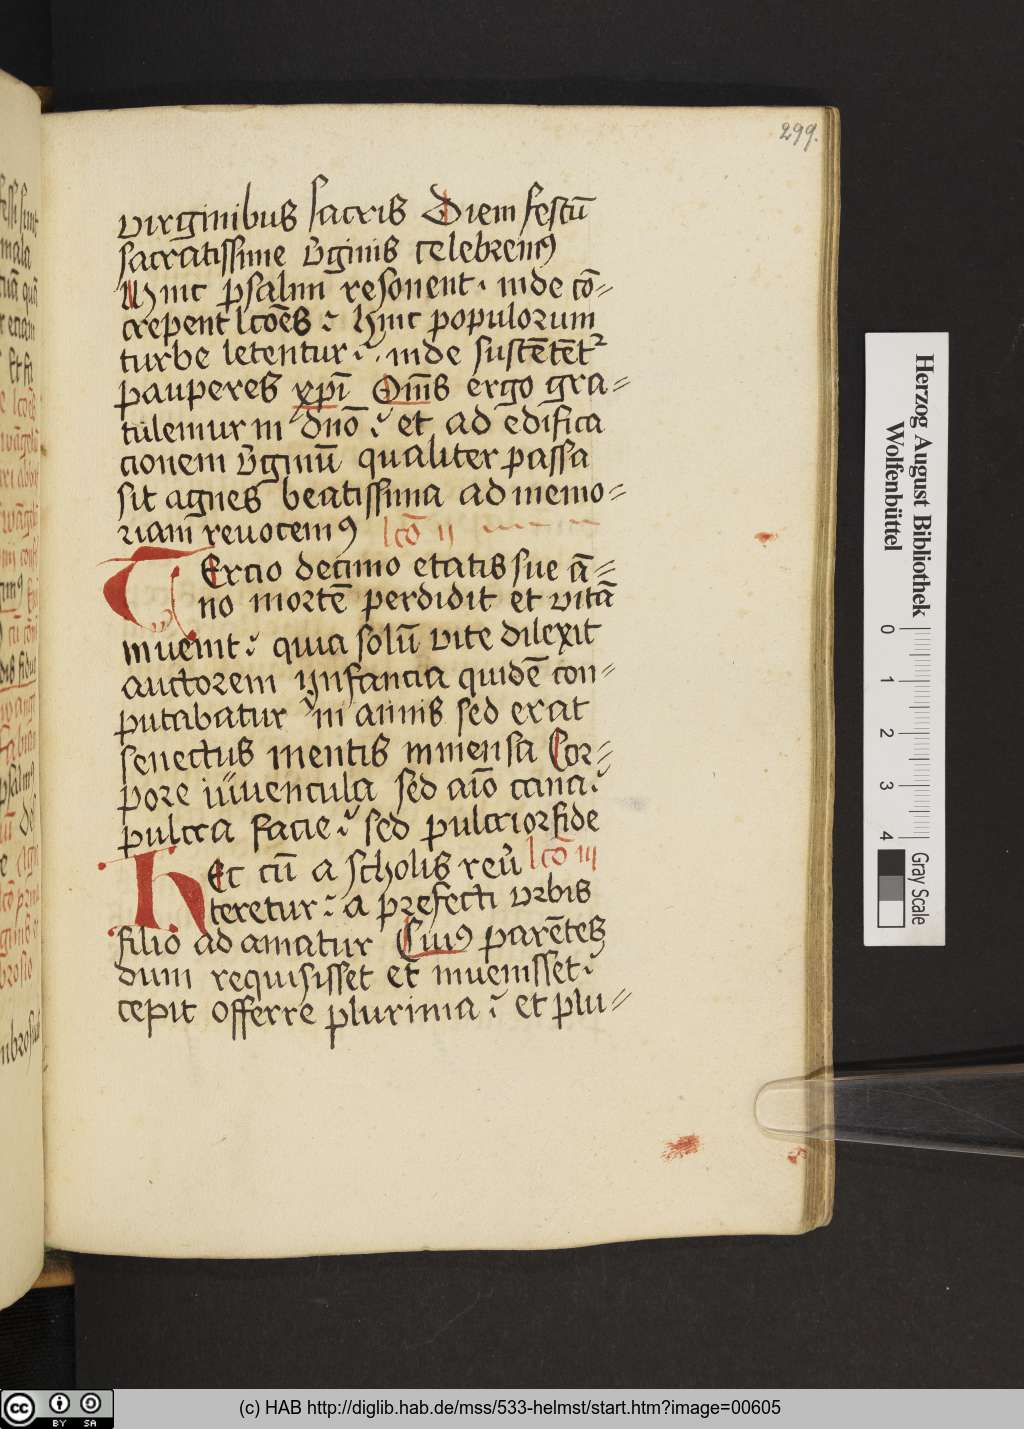 299.
virginibus sacris Diem festū
sacratissime v̄ginis celebremꝰ
Hinc psalmi resonent· inde cō-
crepent lcōes : hinc populorum
turbe letentur : inde sustētēt᷑
pauperes xp̄i Om̄s ergo gra-
tulemur in dn̄o : et ad edifica
cionem v̄ginū qualiter passa
sit agnes beatissima ad memo-
riam reuocemꝰ lcō ii
Tercio decimo etatis sue ā-
no mortē perdidit et vitā
inuenit : quia solū vite dilexit
auctorem ynfancia quidē con-
putabatur in annis sed erat
senectus mentis inmensa Cor-
pore iuuencula sed aīo cana :
pulcra facie : sed pulcrior fide
Hec cū a scholis reu᷑ lcō iii
teretur : a prefecti vrbis
filio ad amatur Cuiꝰ parētes
dum requisisset et inuenisset :
cepit offerre plurima : et plu-
Herzog August Bibliothek
Wolfenbüttel
0 1 2 3 4
Gray Scale
cc BY SA
(c) HAB http://diglib.hab.de/mss/533-helmst/start.htm?image=00605